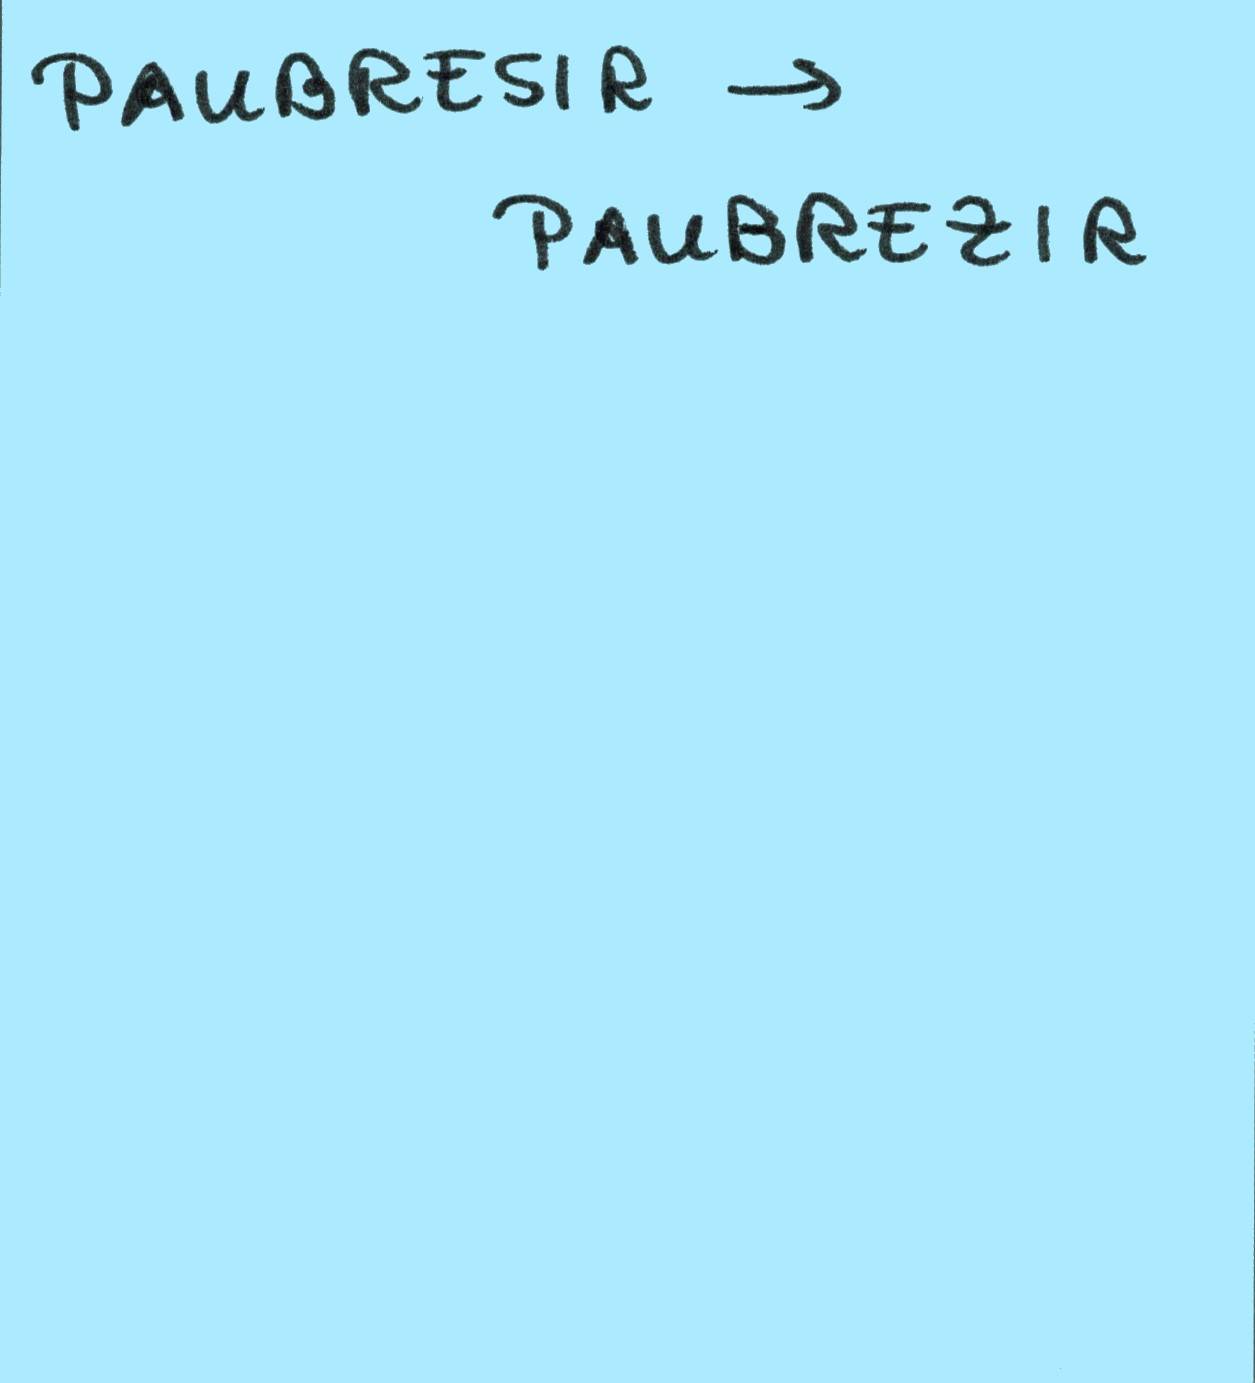 PAUBRESIR →
PAUBREZIR